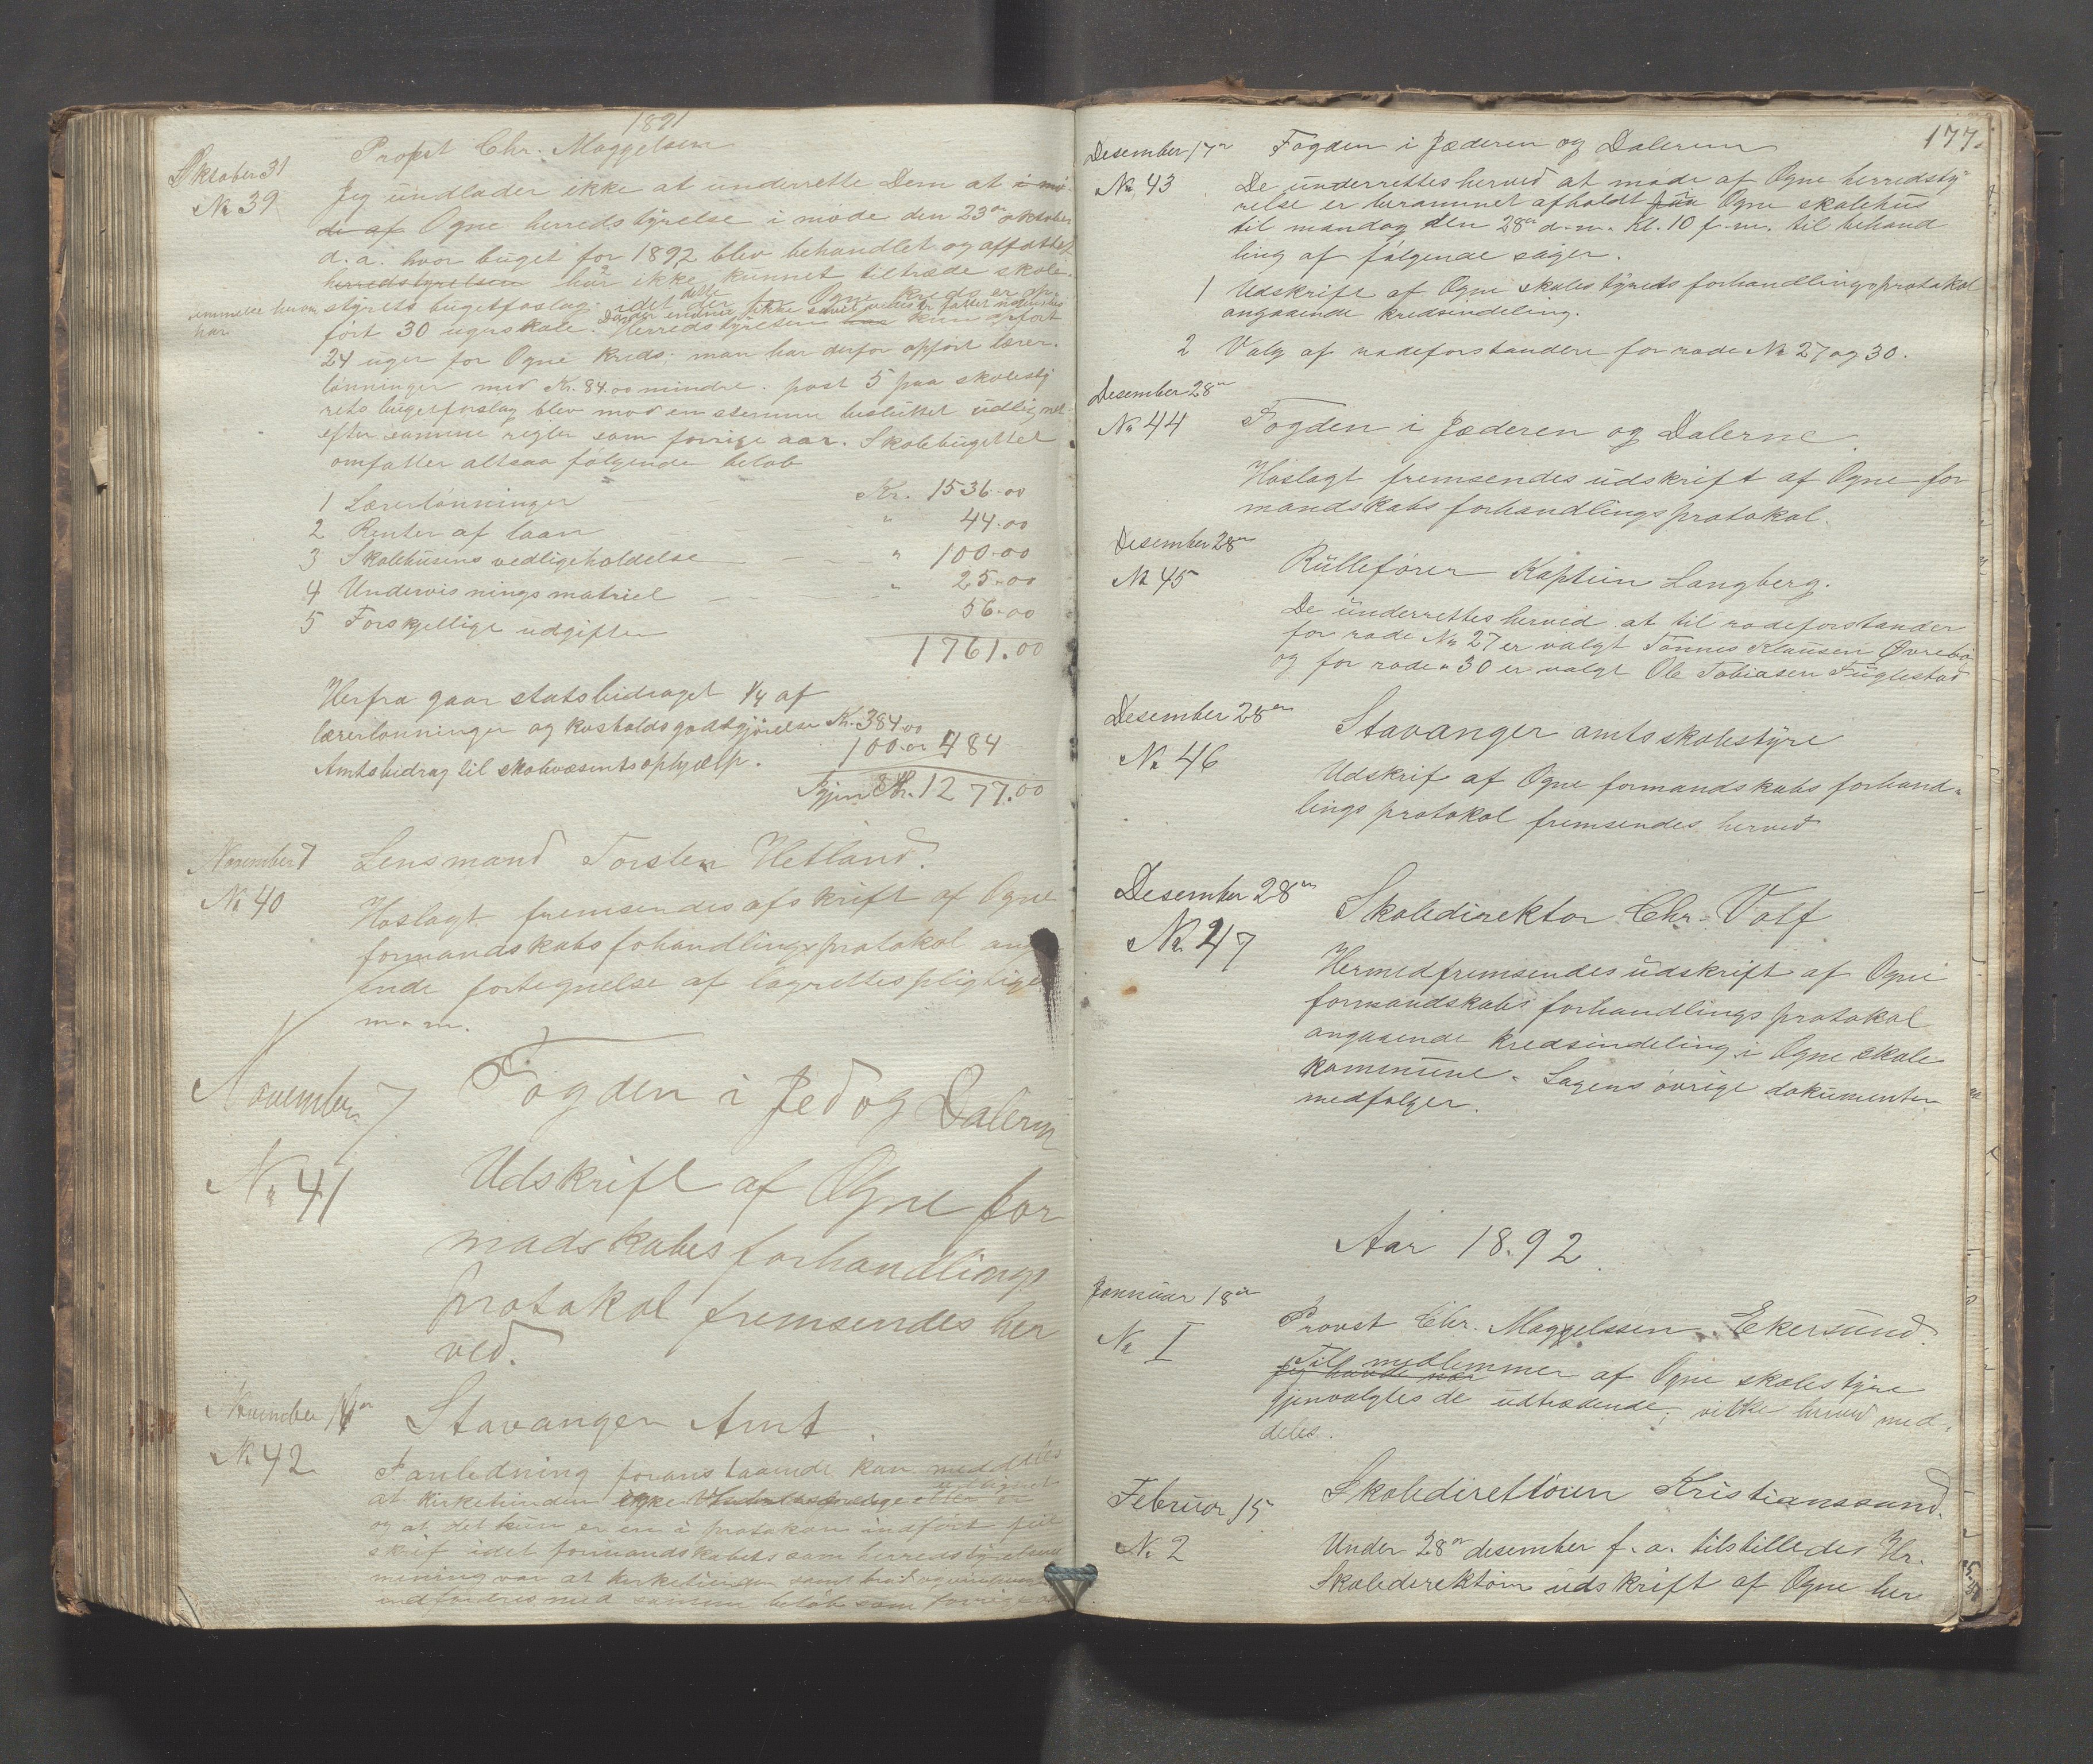 1891
Oktober 31
No 39
Propst Chr. Maggelsen
Jeg undlader ikke at underrette Dem at i mø-
de af Ogne herredstyrelse i møde den 23de oktober
d. a. hvor buget for 1892 blev behandlet og affattet
herredstyrelsen har ikke kunnet tiltræde skole-
styrets bugetforslag, idet der for Ogne kreds er op-
ført 30 ugerskole. herredstyrelsen har kun opført
24 uger for Ogne kreds. man har derfor opført lærer-
lønninger med Kr. 84.00 mindre. post 5 paa skolesty
rets bugetforslag blev mod en stemme besluttet udlignet
efter samme regler som forrige aar. Skolebugettet
omfatter altsaa følgende beløb
1 Lærerlønninger Kr. 1536.00
2 Renter af laan " 44.00
3 Skolehusens vedligeholdelse " 100.00
4 Undervisningsmatriel " 25.00
5 Forskjellige udgifter 56.00
1761.00
Herfra gaar statsbidraget 1/4 af
lærerlønninger og kostholdsgodtgjørelse Kr. 384.00
Amtsbidrag til skolevæsentsophjælp. 100.00 484
Igjen Kr. 1277.00
November 7
No 40
Lensmand Torsten Hetland.
Hoslagt fremsendes afskrift af Ogne
formandskabs fohandlingsprotokol ang
ende fortegnelse af lagrettespligtige
m. m.
November 7
No 41
Fogden i Jed og Dalerne
Udskrift af Ogne for
madskabes forhandlings
protokol fremsendes her
ved.
November 14de
No 42
Stavanger Amt.
I anledning foranstaaende kan meddeles
at kirketienden ikke
og at det kun er en i protokolen indført feil
skrif idet formandskabets som herredstyrelsens
mening var at kirketienden samt
indfordres med samme beløb som forrige aar
177.
Desember 17de
No 43
Fogden i Jæderen og Dalerne
De underrettes herved at møde af Ogne herredsty
relse er berammet afholdt paa Ogne skolehus
til mandag den 28de d. m. Kl. 10 f. m. til behand
ling af følgende sager.
1 Udskrift af Ogne skolestyrets forhandlingsprotokol
angaaende kredsindeling.
2 Valg af rodeforstandere for rode No 27 og 30.
Desember 28de
No 44
Fogden i Jæderen og Dalerne
Hoslagt fremsendes udskrift af Ogne for
mandskabs forhandlingsprotokol.
Desember 28de
No 45
Rullefører Kaptein Langberg.
De underrettes herved at til rodeforstander
for rode No 27 er valgt Tønnes Klausen Øvrebø
og for rode " 30 er valgt Ole Tobiasen Fuglestad
Desember 28de
No 46
Stavanger amtsskolestyre
Udskrif af Ogne formandskabs forhand-
lings protokol fremsendes herved
Desember 28de
No 47
Skoledirektor Chr. Volf
Hermedfremsendes udskrift af Ogne
formandskabs forhandlings protokol
angaaende kredsindeling i Ogne skole
kommune. Sagens øvrige dokumenter
medfølger.
Aar 18.92.
Januar 18de
No I
Provst Chr. Maggelssen Ekersund.
Til medlemmer af Ogne skolestyre
gjenvalgtes de udtrædende, vilke herved med-
deles.
Februar 15
No 2
Skoledirettøren Kristianssand.
Under 28de desember f. a. tilstilledes Hr.
Skolederektøren udskrift af Ogne her